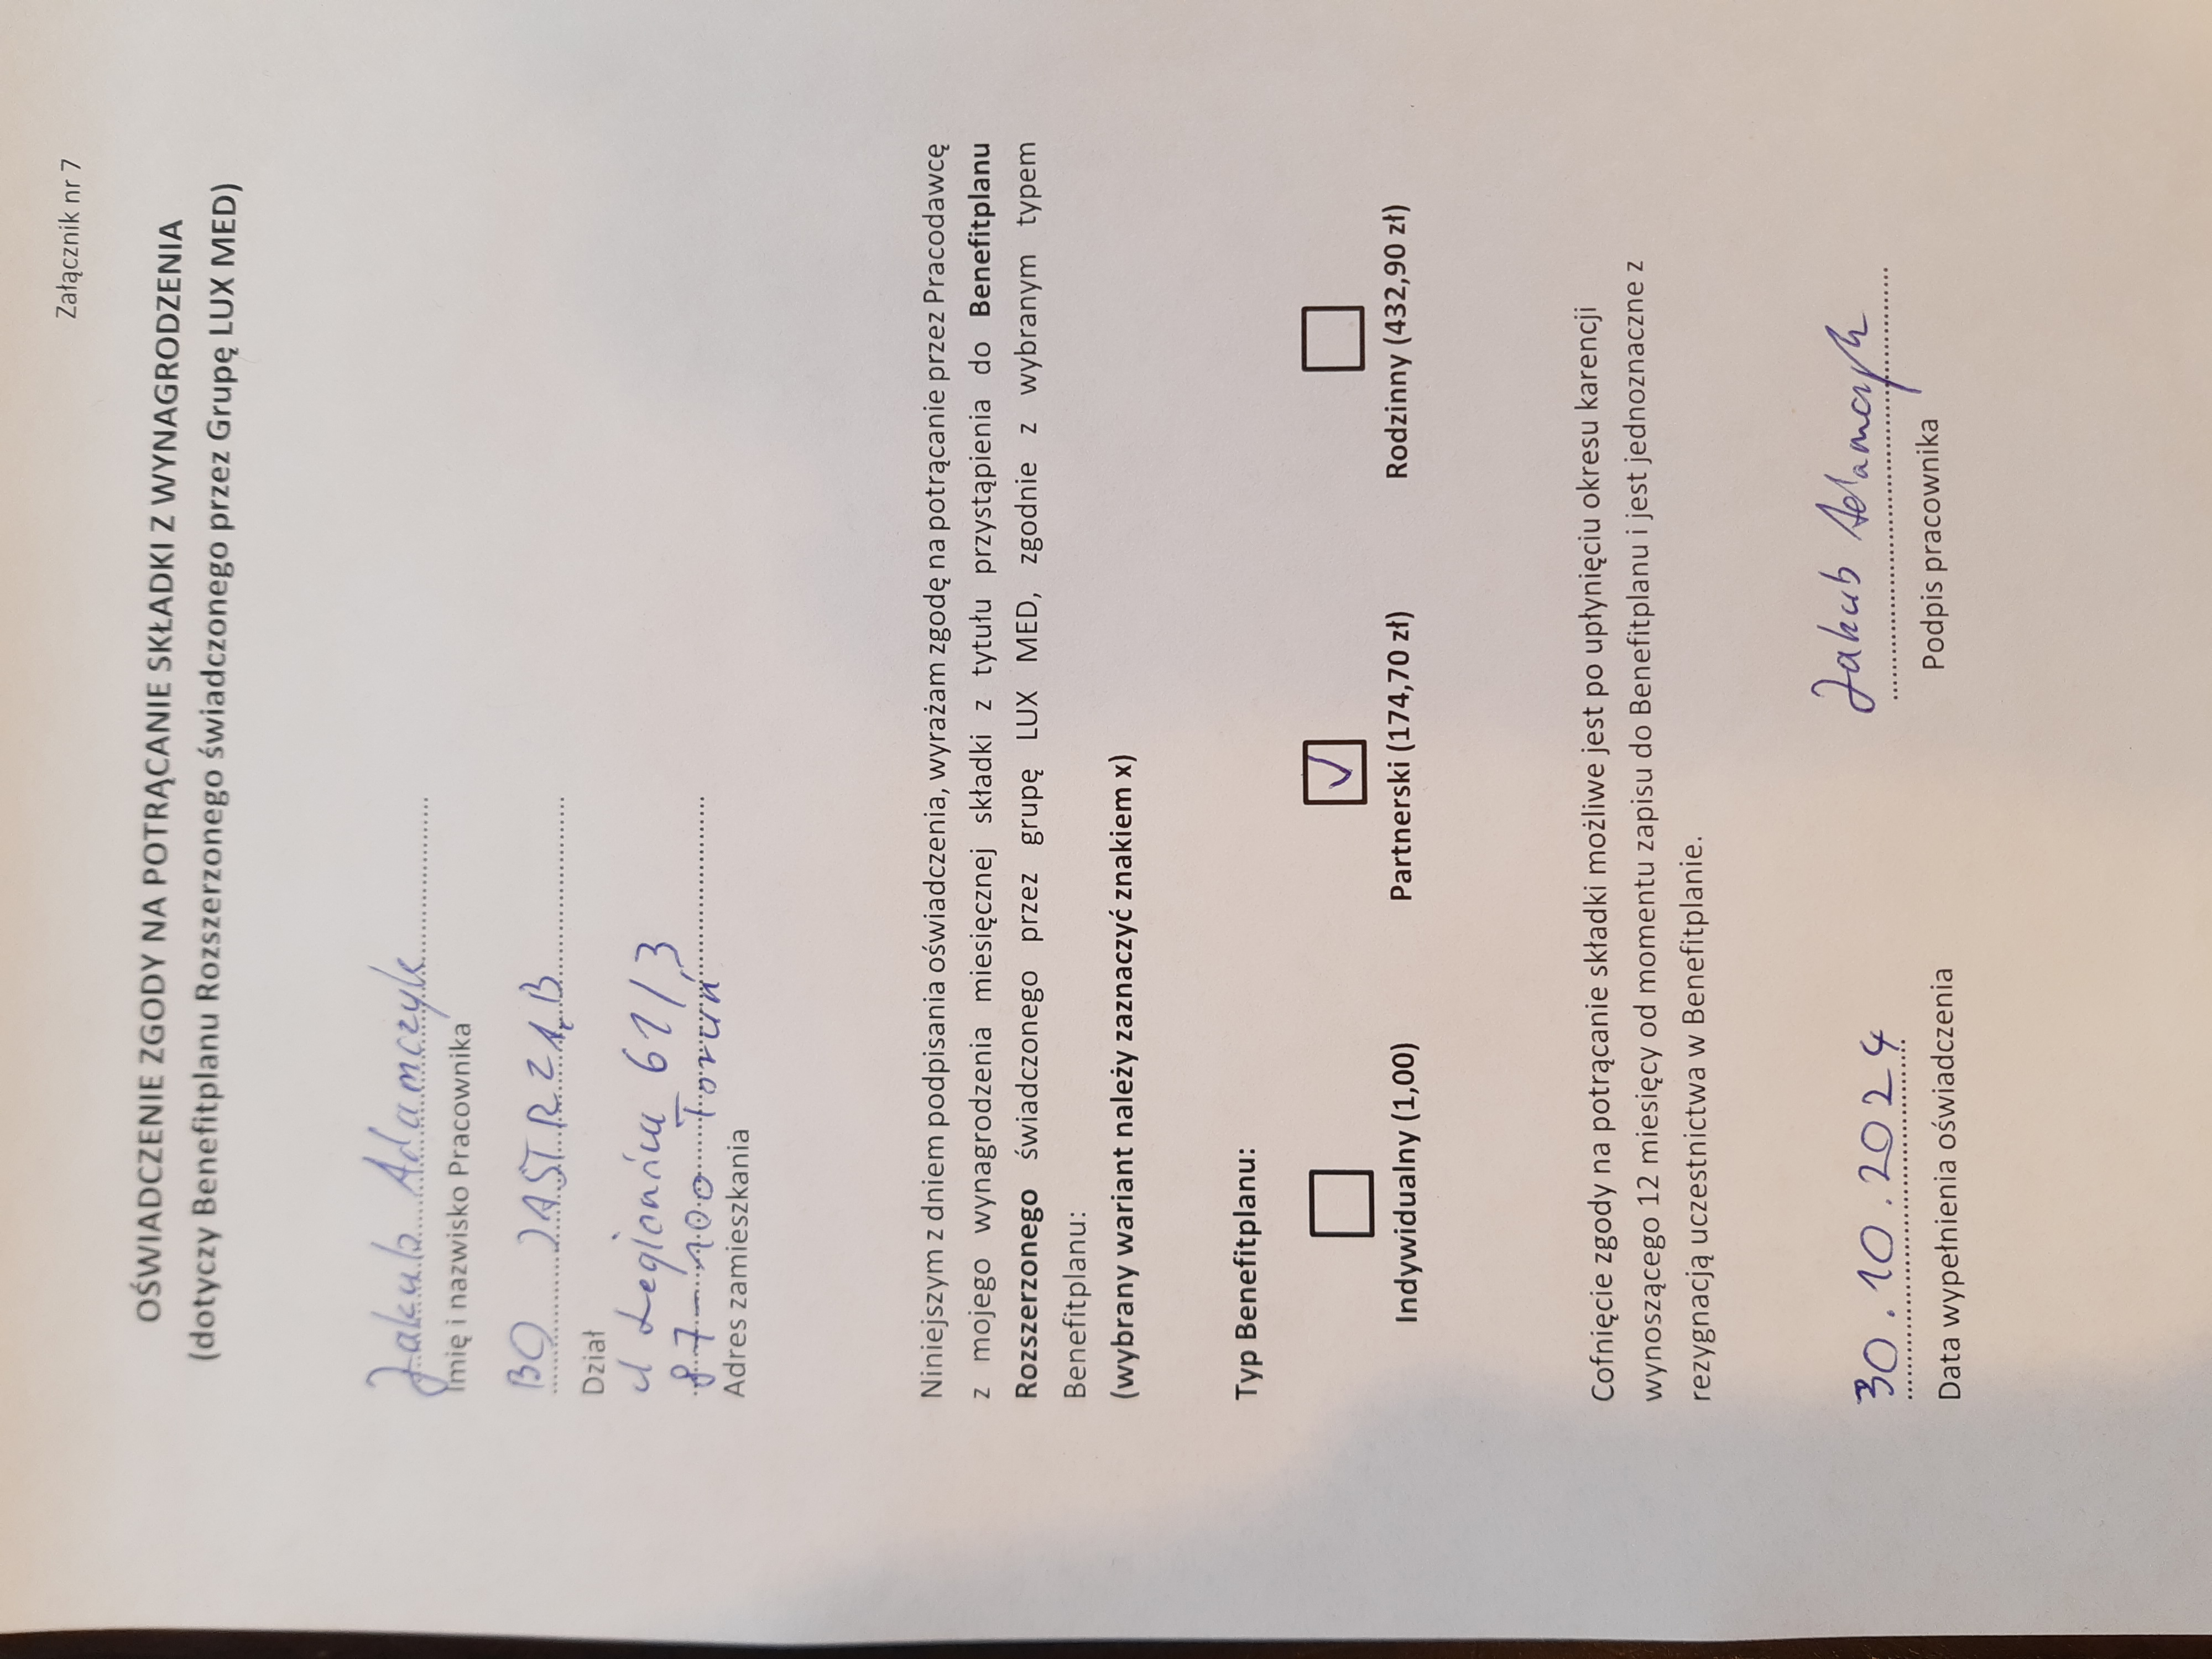 Załącznik nr 7
OŚWIADCZENIE ZGODY NA POTRĄCANIE SKŁADKI Z WYNAGRODZENIA
(dotyczy Benefitplanu Rozszerzonego świadczonego przez Grupę LUX MED)
Jakub Adamczyk
Imię i nazwisko Pracownika
BO JASTRZĄB
Dział
ul Legionów 61/3
87-100 Toruń
Adres zamieszkania
Niniejszym z dniem podpisania oświadczenia, wyrażam zgodę na potrącanie przez Pracodawcę
z mojego wynagrodzenia miesięcznej składki z tytułu przystąpienia do Benefitplanu
Rozszerzonego świadczonego przez grupę LUX MED, zgodnie z wybranym typem
Benefitplanu:
(wybrany wariant należy zaznaczyć znakiem x)
Typ Benefitplanu:
Indywidualny (1,00) Partnerski (174,70 zł) Rodzinny (432,90 zł)
Cofnięcie zgody na potrącanie składki możliwe jest po upłynięciu okresu karencji
wynoszącego 12 miesięcy od momentu zapisu do Benefitplanu i jest jednoznaczne z
rezygnacją uczestnictwa w Benefitplanie.
30.10.2024 Jakub Adamczyk
Data wypełnienia oświadczenia Podpis pracownika